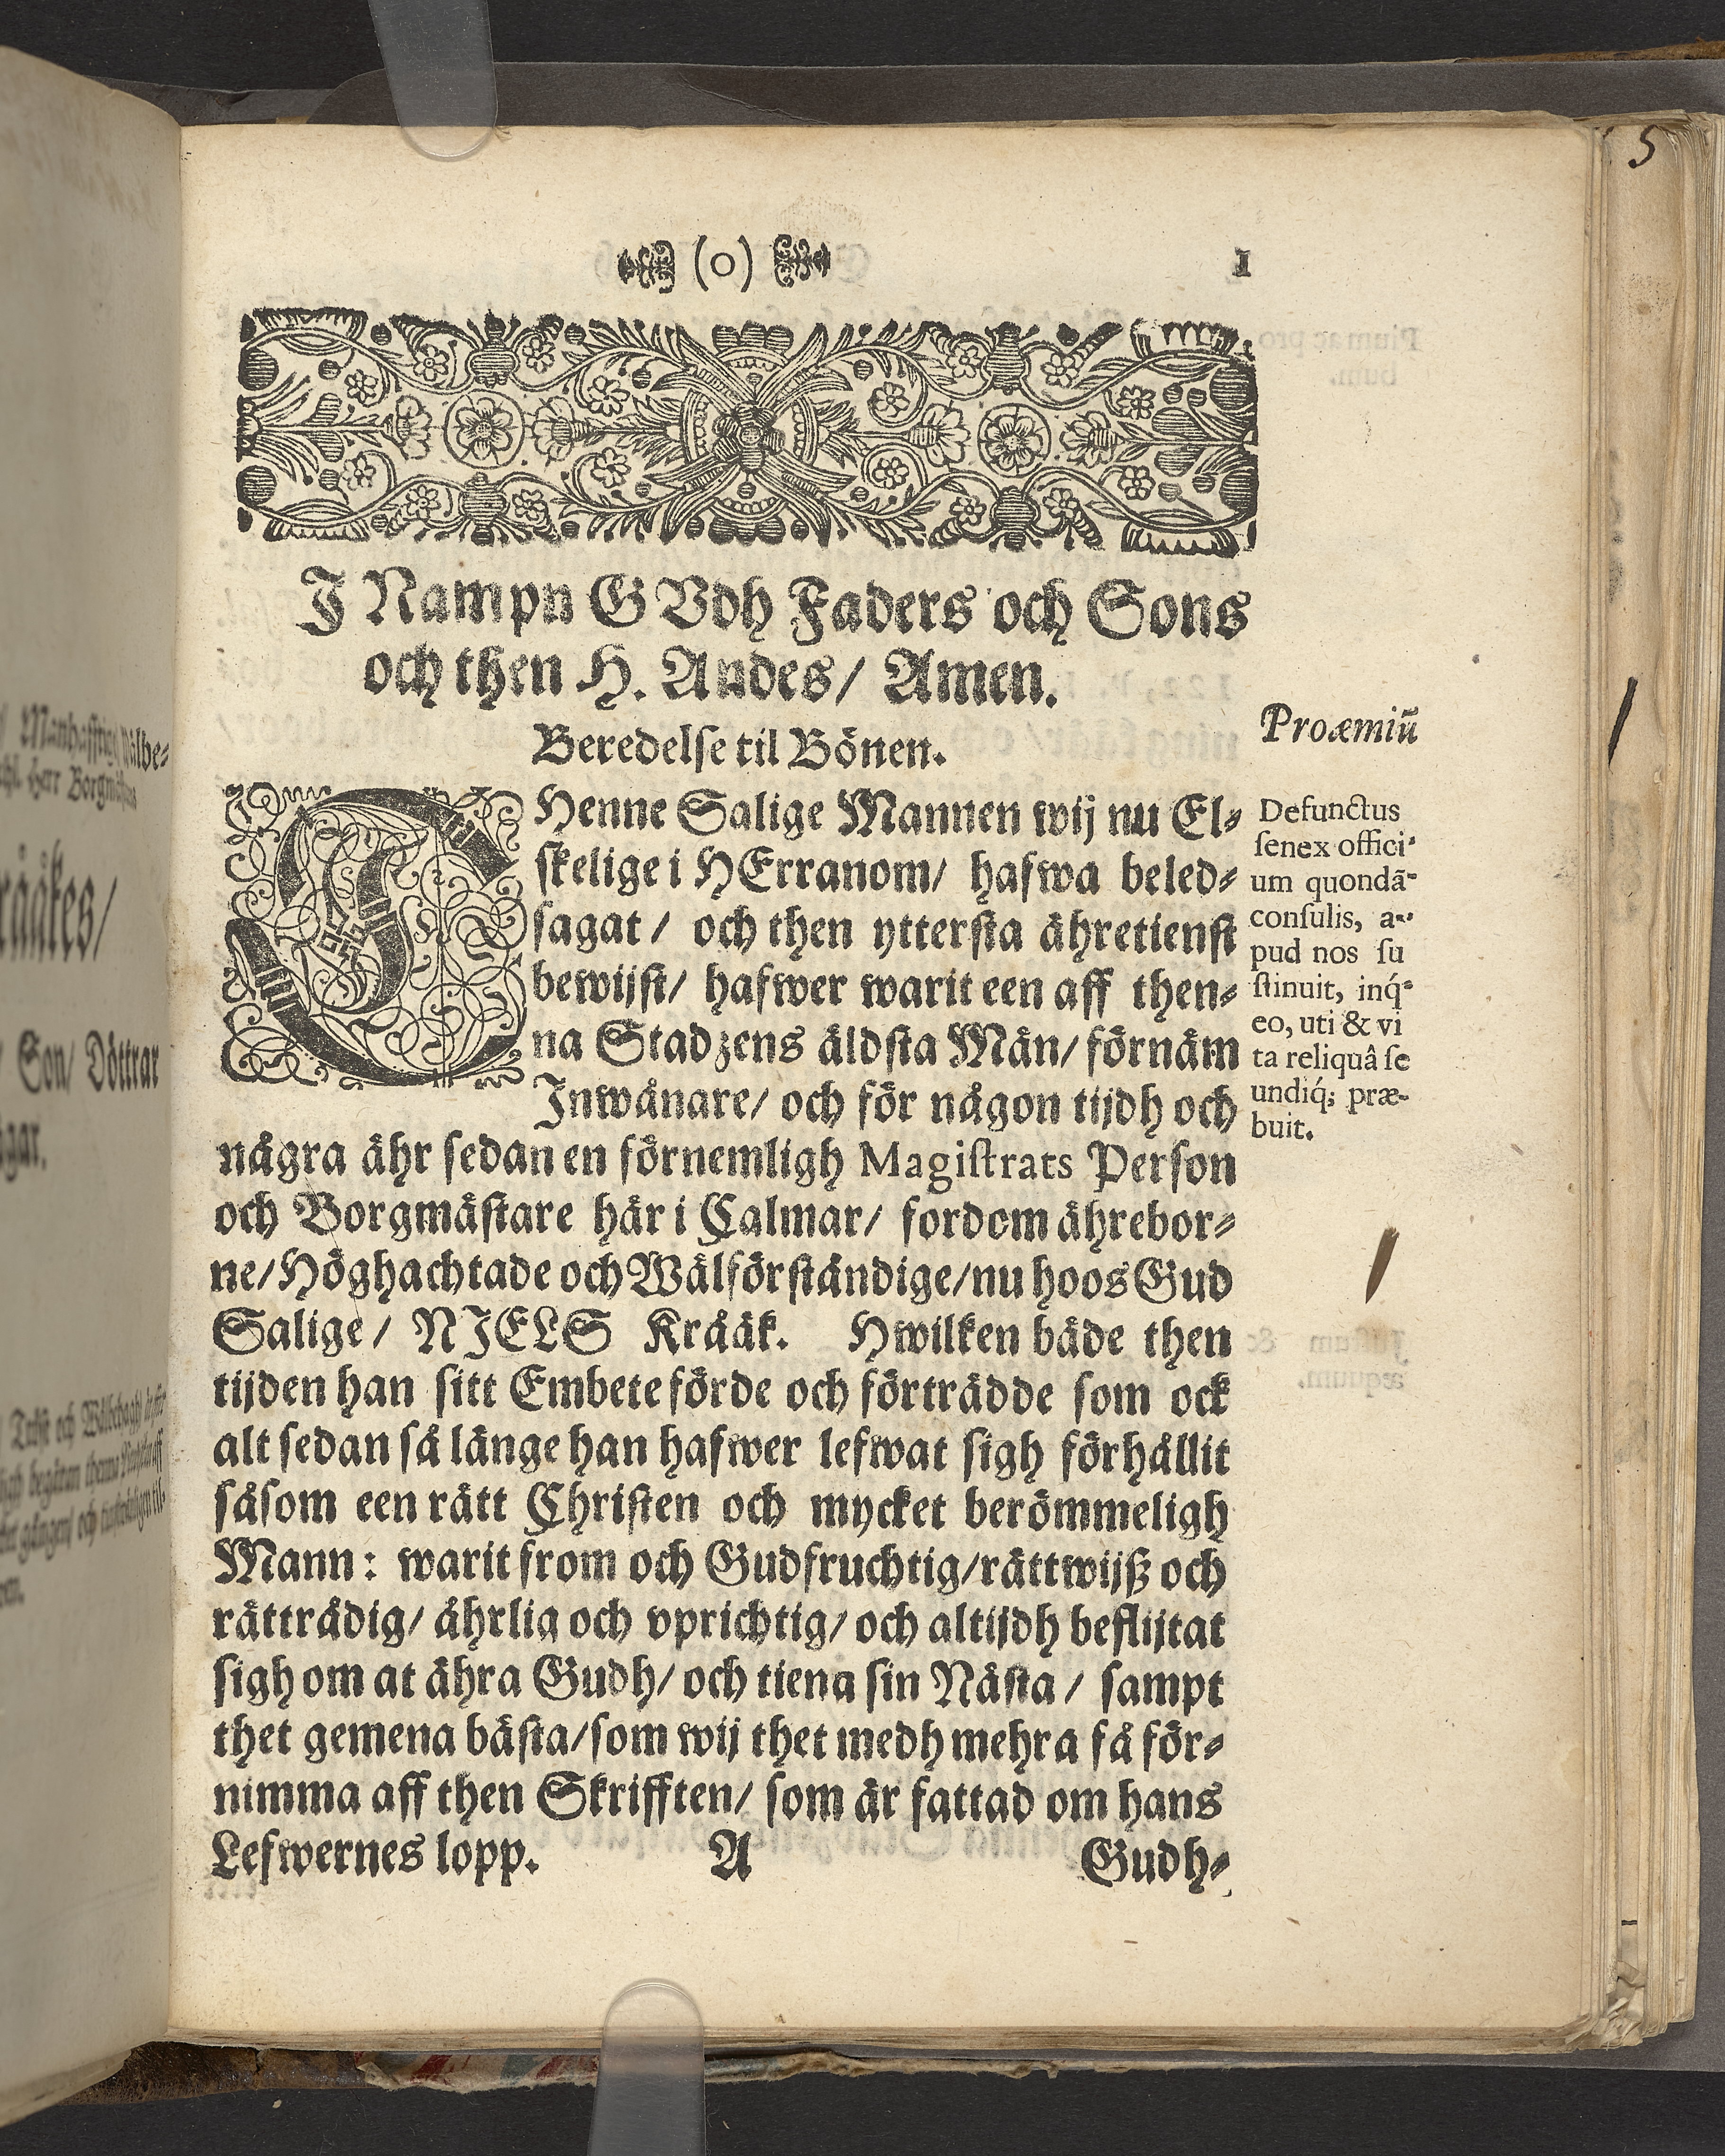 (o) 1
5
J Nampn GVdh Faders och Sons
och then H. Andes/ Amen.
Beredelse til Bönen.
Proæmiũ
THenne Salige Mannen wij nu El⸗
skelige i HErranom/ hafwa beled⸗
sagat/ och then yttersta ähretienst
bewijst/ hafwer warit een aff then⸗
na Stadzens äldsta Män/ förnäm
Jnwånare/ och för någon tijdh och
några ähr sedan en förnemligh Magistrats Person
och Borgmästare här i Calmar/ fordom ährebor⸗
ne/ Höghachtade och Wälförståndige/ nu hoos Gud
Salige/ NJELS Krååk. Hwilken både then
tijden han sitt Embete förde och förträdde som ock
alt sedan så länge han hafwer lefwat sigh förhållit
såsom een rätt Christen och mycket berömmeligh
Mann: warit from och Gudfruchtig/ rättwijß och
rättrådig/ åhrlig och vprichtig/ och altijdh beflijtat
sigh om at ähra Gudh/ och tiena sin Nästa/ sampt
thet gemena bästa/ som wij thet medh mehra få för⸗
nimma aff then Skrifften/ som är fattad om hans
Lefwernes lopp. A Gudh⸗
Defunctus
senex offici-
um quondã-
consulis, a-
pud nos su
stinuit, inq́-
eo, uti & vi
ta reliquâ se
undiq́; præ-
buit.
Son/ Döttrar